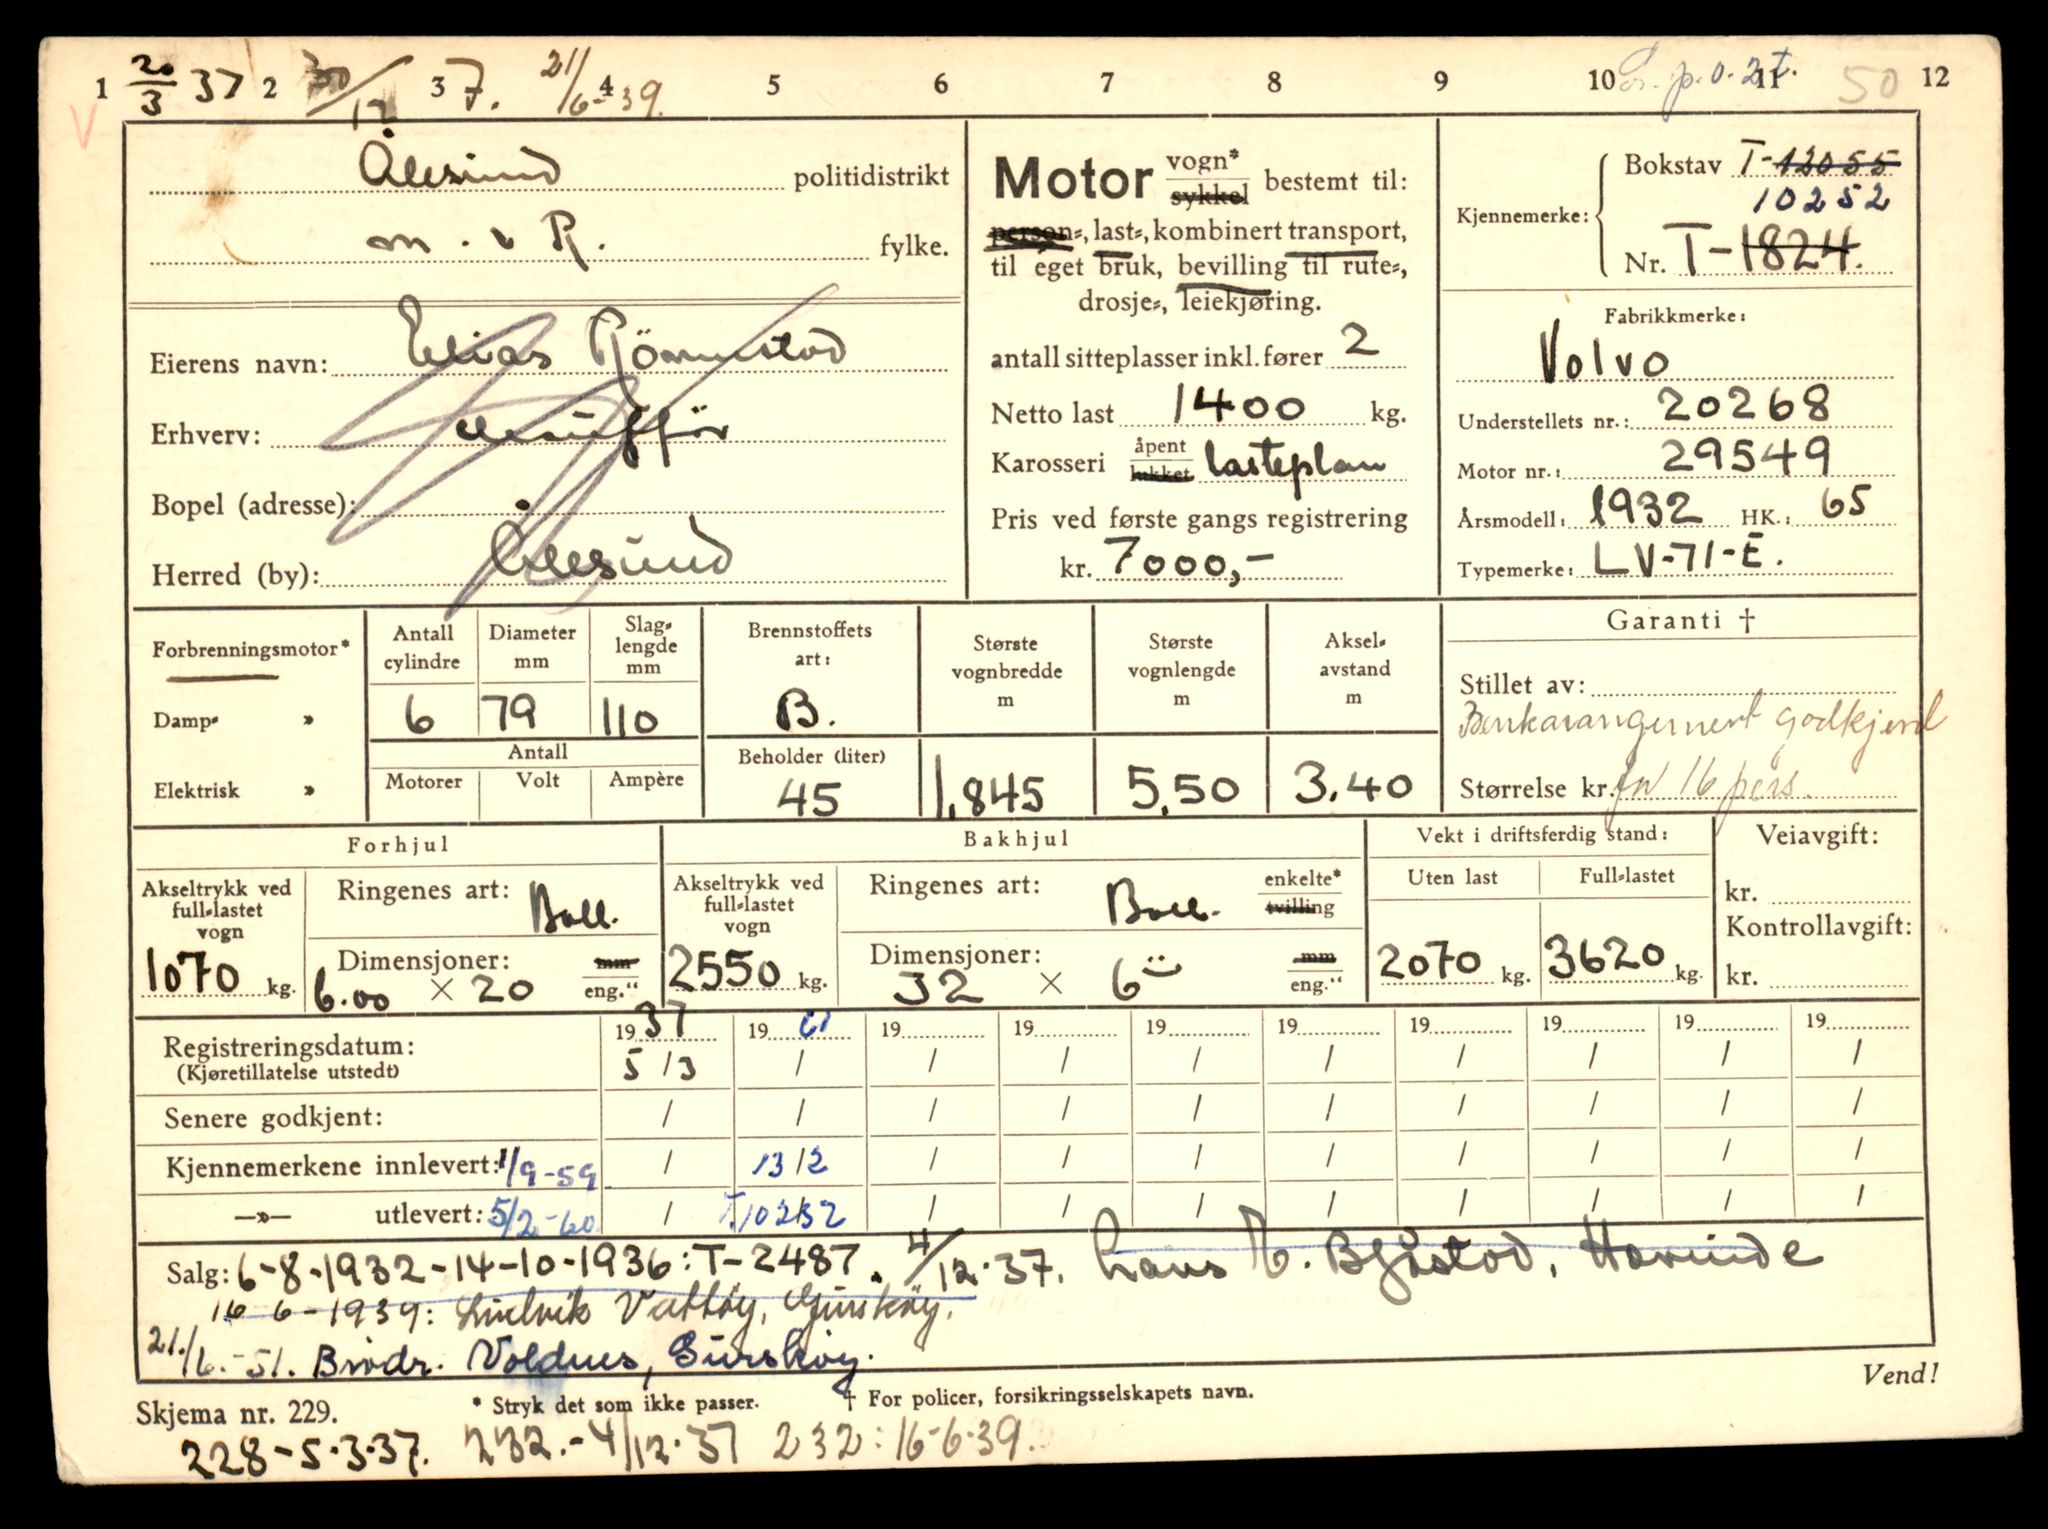 1 20/3 37 2 30/12 37. 21/6-39. 4 5 6 7 8 9 10 11 50 12
V
Ålesund politidistrikt
m. v R. fylke.
Eierens navn: Elias
Erhverv:
Bopel (adresse):
Herred (by): Ålesund
Motor vogn* sykkel bestemt til:
person-, last-, kombinert transport,
til eget bruk, bevilling til rute-,
drosje-, leiekjøring.
antall sitteplasser inkl. fører 2
Netto last 1400 kg.
Karosseri åpent lukket lasteplan
Pris ved første gangs registrering
kr. 7000,-
Kjennemerke: Bokstav T-13055
10252
Nr. T-1824.
Fabrikkmerke:
Volvo
Understellets nr.: 20268
Motor nr.: 29549
Årsmodell: 1932 HK.: 65
Typemerke: LV-71-E.
Forbrenningsmotor*
Damp- »
Elektrisk »
Antall cylindre 6
Diameter mm 79
Slag-lengde mm 110
Antall
Motorer Volt Ampère
Brennstoffets art: B.
Beholder (liter) 45
Største vognbredde m 1,845
Største vognlengde m 5,50
Aksel-avstand m 3.40
Garanti †
Stillet av:
Benkarangement godkjend
Størrelse kr. for 16 pers.
Forhjul
Akseltrykk ved full-lastet vogn 1070 kg.
Ringenes art: Ball.
Dimensjoner: 6.00 × 20 mm eng."
Bakhjul
Akseltrykk ved full-lastet vogn 2550 kg.
Ringenes art: Ball. enkelte* tvilling
Dimensjoner: 32 × 6" mm eng."
Vekt i driftsferdig stand:
Uten last 2070 kg.
Full-lastet 3620 kg.
Veiavgift:
kr.
Kontrollavgift:
kr.
1937 1961 19 19 19 19 19 19 19 19
Registreringsdatum: 5/3 / / / / / / / / /
(Kjøretillatelse utstedt)
Senere godkjent: / / / / / / / / / /
Kjennemerkene innlevert: 1/9-59 / 13/2 / / / / / / / /
—»— utlevert: 5/2-60 / T.10252 / / / / / / / /
Salg: 6-8-1932-14-10-1936: T-2487. 4/12.37. Hans E. Bjåstad, Hareide
16-6-1939: Ludvik Vattøy, Gurskøy.
21./6.-51. Brødr. Voldnes, Gurskøy.
Vend!
Skjema nr. 229. * Stryk det som ikke passer. † For policer, forsikringsselskapets navn.
228-5.3.37. 232.-4/12.37 232: 16-6-39.